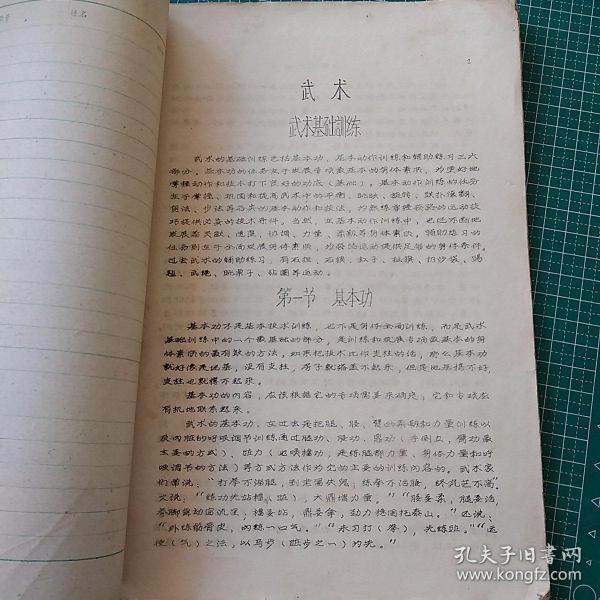 姓名
1
武术
武术基础训练
武术的基础训练包括基本功、基本动作训练和辅助练习三大
部分。基本功的任务在于发展专项最基本的身体素质，为更好地
掌握动作和技术打下良好的功底（基础）。基本动作训练的任务
在于掌握、巩固和提高武术中的平衡、跳跃、旋转、跌扑滚翻、
身法、步法等各类的基本动作和技法，为熟练掌握较难的运动技
巧提供必要的技术条件。当然，在基本动作训练中，也还不断地
发展着灵敏、速度、协调、力量、柔韧等身体素质。辅助练习的
任务则在于全面发展身体素质，为该项运动提供足够的身体条件。
过去武术的辅助练习，有石担、石锁、杠子、抽膘、扔沙袋、踢
毽、武绳、跳栗子、钻圈等运动。
第一节 基本功
基本功不是基本技术训练，也不是身体全面训练，而是武术
基础训练中的一个最基础的部分，是训练和发展专项最基本的身
体素质的最有效的方法，如果把技术比作支柱的话，那么基本功
就好像是地基，没有支柱，房子就搭盖不起来，但是地基搞不好，
支柱也就撑不起来。
基本功的内容，应该根据它的专项需要来确定；它和专项应
有机地联系起来。
武术的基本功，在过去是把腿、腰、臂的柔韧和力量训练以
及内脏的呼吸调节训练通过腿功、腰功、鼎功（手倒立，臂功最
主要的方式）、桩功（也唤撑功，是练腿部力量、身体力量和呼
吸调节的方法）等方式方法作为它的主要的训练内容的。武术家
们常说：“打拳不溜腿，到老冒失鬼；练拳不活腰，终究艺不高”
又说：“练功先站桩（桩），大鼎增力量。”“腰要柔，腿要活
劲力稳固托泰山。”还说：
“外练筋骨皮，内练一口气。”“未习打（拳），先练桩。”“运
使（气）之法，以马步（桩步之一）为先。”
孔夫子旧书网
www.kongfz.com